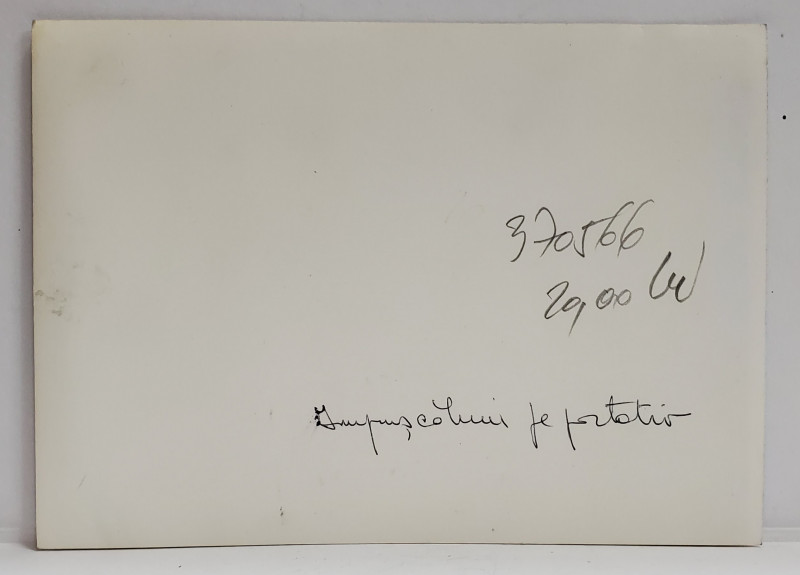 370566
20,00 lei
Împușcături pe portativ